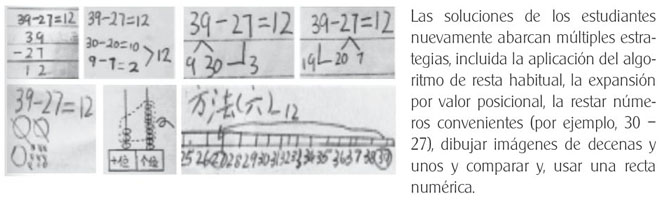 39-27=12
39
-27
12
39-27=12
30-20=10
9-7=2
>12
39-27=12
9 30 3
39-27=12
19 20 7
39-27=12
十位 个位
方法(六) 12
25 26 27 28 29 30 31 32 33 34 35 36 37 38 39
Las soluciones de los estudiantes
nuevamente abarcan múltiples estra-
tegias, incluida la aplicación del algo-
ritmo de resta habitual, la expansión
por valor posicional, la restar núme-
ros convenientes (por ejemplo, 30 –
27), dibujar imágenes de decenas y
unos y comparar y, usar una recta
numérica.